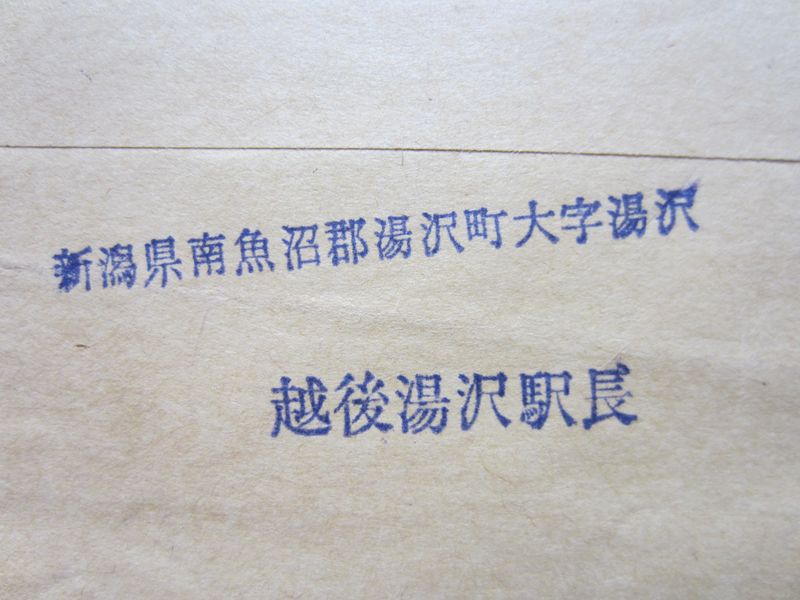 新潟県南魚沼郡湯沢町大字湯沢
越後湯沢駅長